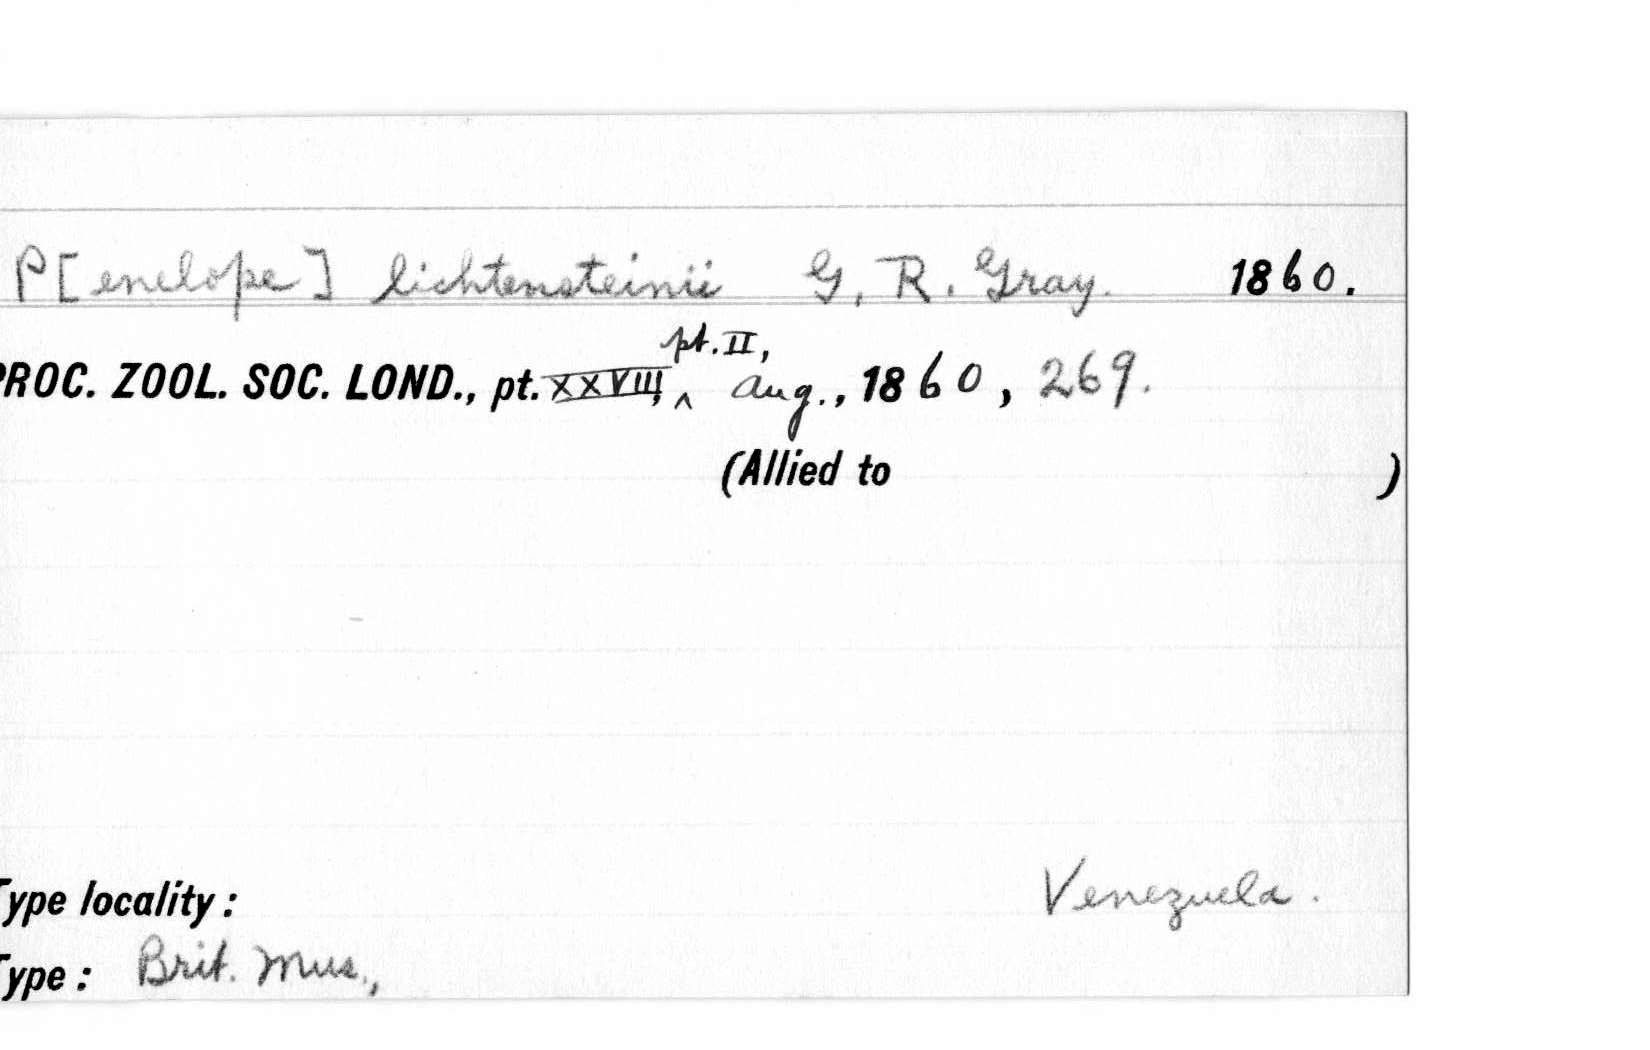 P[enelope] lichtensteinii G. R. Gray. 1860.
PROC. ZOOL. SOC. LOND., pt. XXVIII, ^ pt. II, Aug., 1860, 269.
(Allied to )
Type locality: Venezuela.
Type: Brit. Mus.,